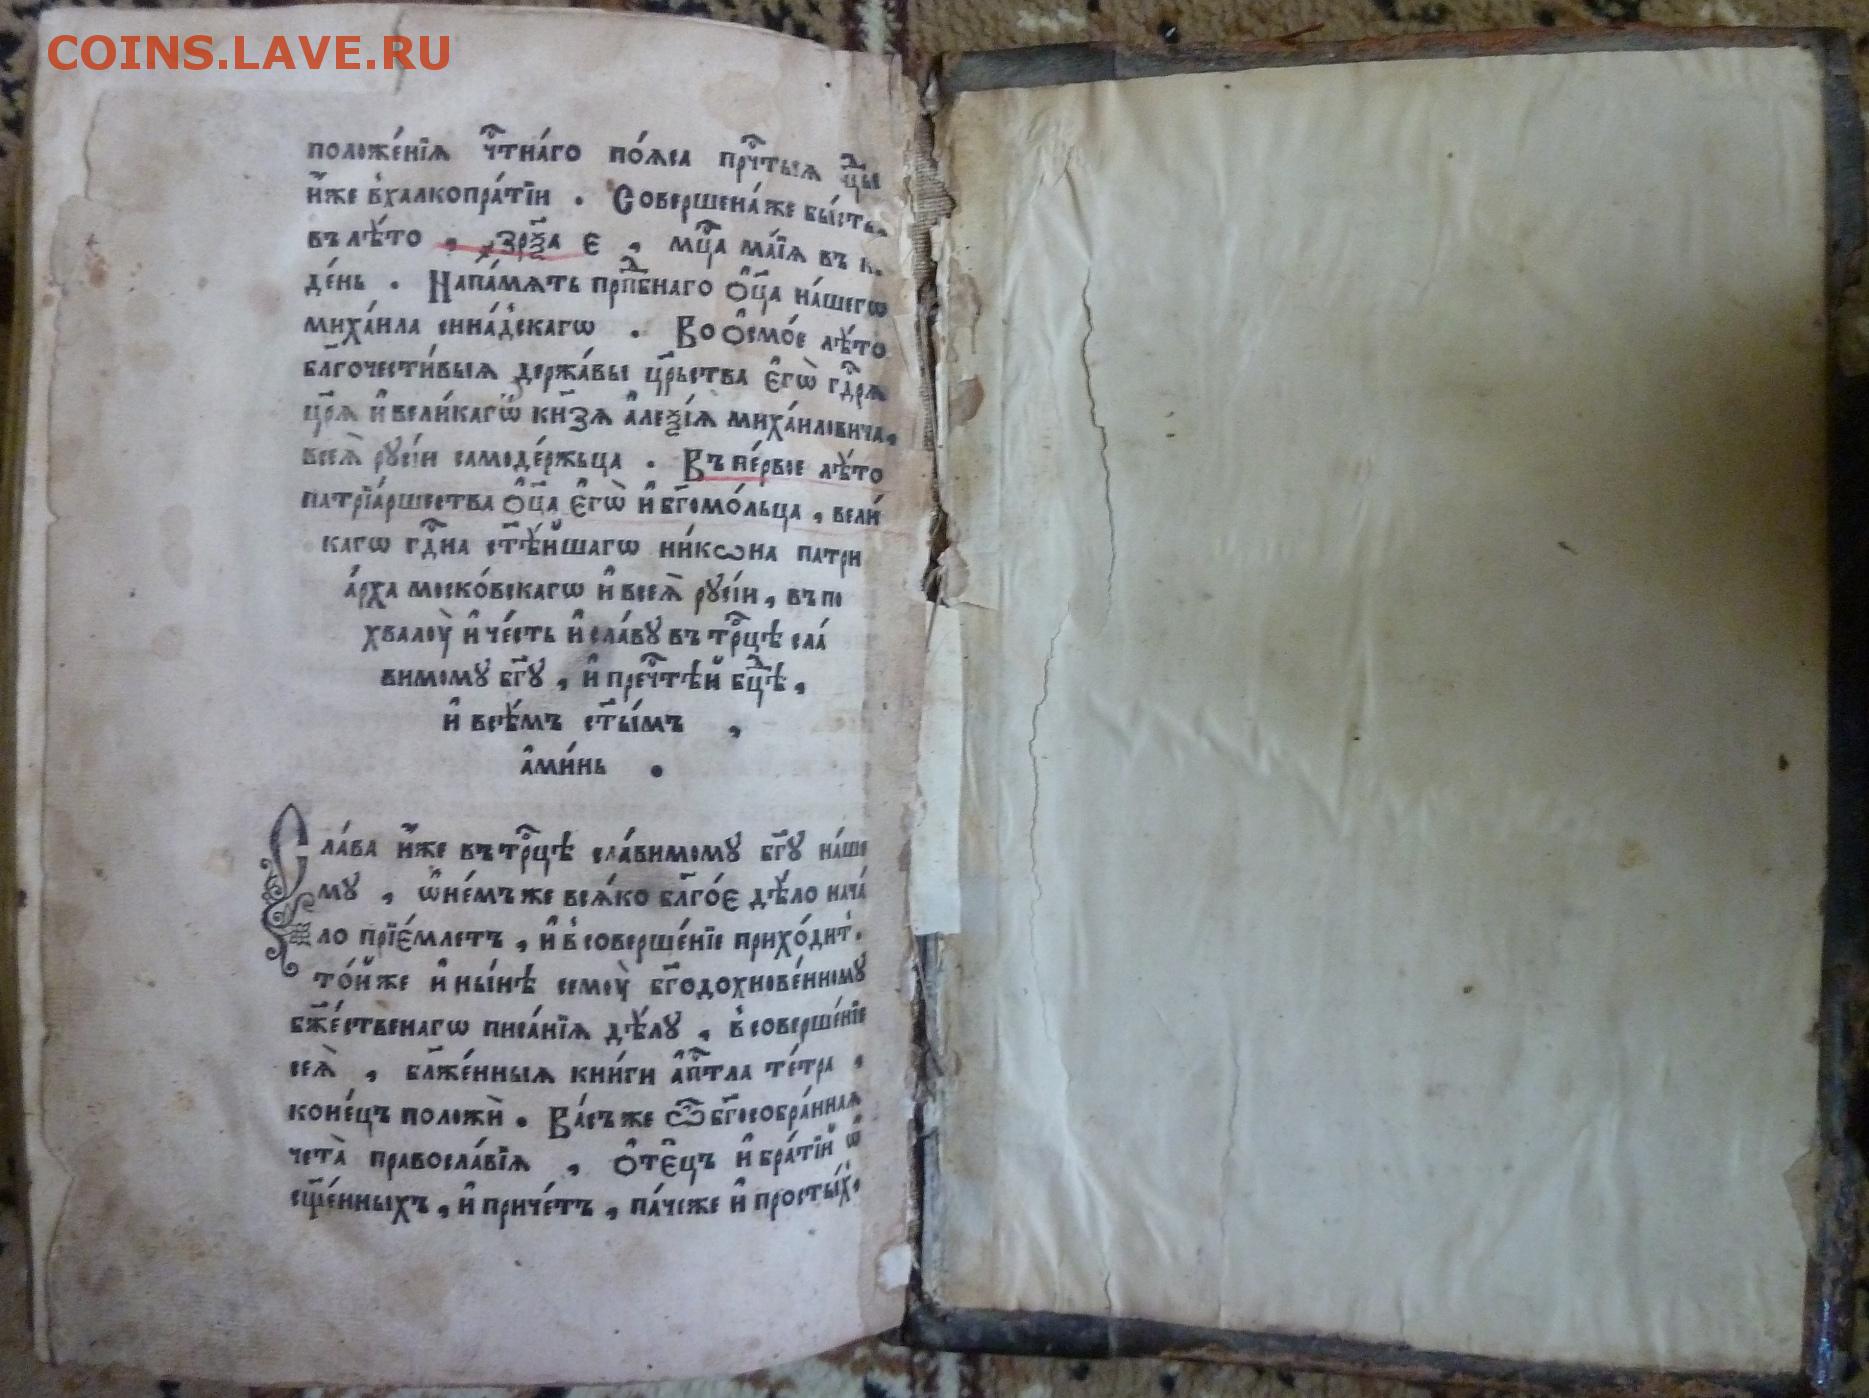 COINS.LAVE.RU
положе́нїѧ чⷭ҇тна́го по́ѧса прⷱ҇тыѧ
и҆́же в҆халкопра́тїи . Соверше́на же бы́сть
въ лѣ́то , ҂зрѯ҃а є , мцⷭ҇а ма́їѧ въ
де́нь . Напа́мѧть прпⷣбнаго ѻ҆ц҃а на́шегѡ
миха́ила сина́дскагѡ . Во ѻ҆смо́е лѣ́то
бл҃гочести́выѧ держа́вы црⷭ҇тва є҆гѡ̀ гдⷭ҇рѧ
цр҃ѧ и҆ вели́кагѡ кн҃зѧ а҆леѯі́ѧ миха́иловича,
всеѧ̀ рꙋсі́и самоде́ржьца . Въ пе́рвое лѣ́то
патрїа́ршества ѻ҆ц҃а є҆гѡ̀ и҆ бг҃омо́льца , вели́
кагѡ гдⷭ҇на ст҃ѣ́йшагѡ ни́кѡна патри
а́рха моско́вскагѡ и҆ всеѧ̀ рꙋсі́и , въ по
хвалꙋ̀ и҆ че́сть и҆ сла́вꙋ въ трⷪ҇цѣ сла́
вимомꙋ бг҃ꙋ , и҆ пречⷭ҇тѣй бцⷣѣ ,
и҆ всѣ́мъ ст҃ы́мъ ,
а҆ми́нь .
Сла́ва и҆́же въ трⷪ҇цѣ сла́вимомꙋ бг҃ꙋ на́ше
мꙋ , ѡ҆ не́мъ же всѧ́ко бл҃го́є дѣ́ло нача́
ло прїе́млетъ , и҆ в҆ соверше́нїе прихо́дит .
то́й же и҆ ны́нѣ семꙋ̀ бг҃одохнове́нномꙋ
бж҃е́ственагѡ писа́нїѧ дѣ́лꙋ , в҆ соверше́нїе
сеѧ̀ , бл҃же́нныѧ кни́ги а҆пⷭ҇тла те́тра ,
коне́цъ положѝ . Ва́съ же ѿ бг҃осо́бра́ннаѧ
чета̀ правосла́вїѧ , ѻ҆тє́цъ и҆ бра́тїй ѡ҆
сщ҃е́нныхъ , и҆ приче́тъ , па́че же и҆ просты́х .